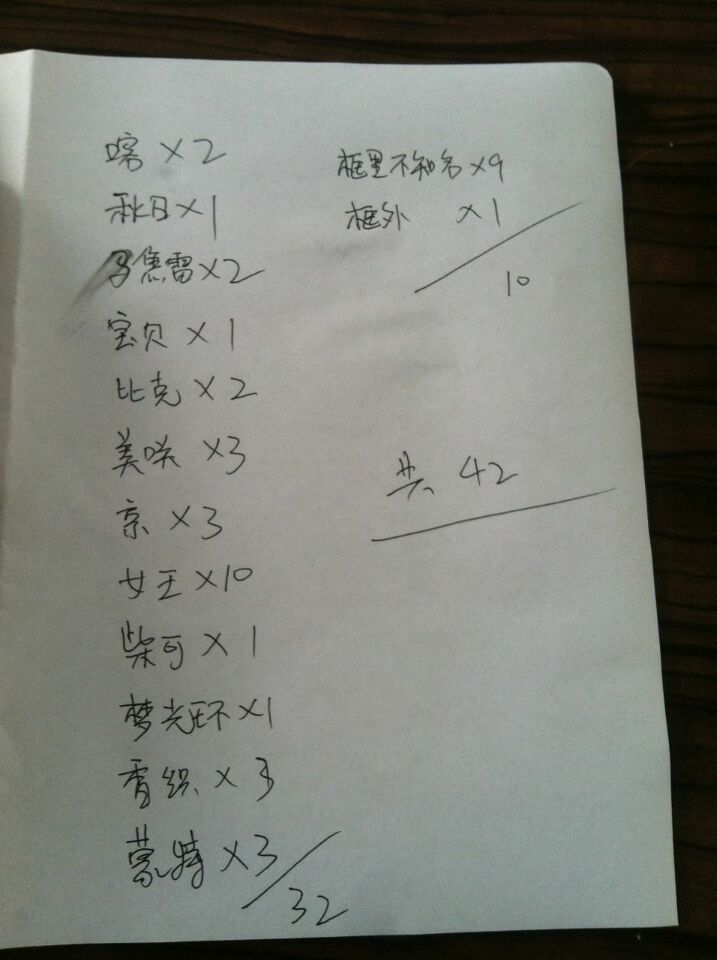 喀 ×2
秋日×1
焦雷×2
宝贝 ×1
比克 ×2
美咲 ×3
京 ×3
女王×10
柴可 ×1
梦光环×1
香织 ×3
蒙特 ×3
32
框里不知名×9
框外 ×1
10
共 42